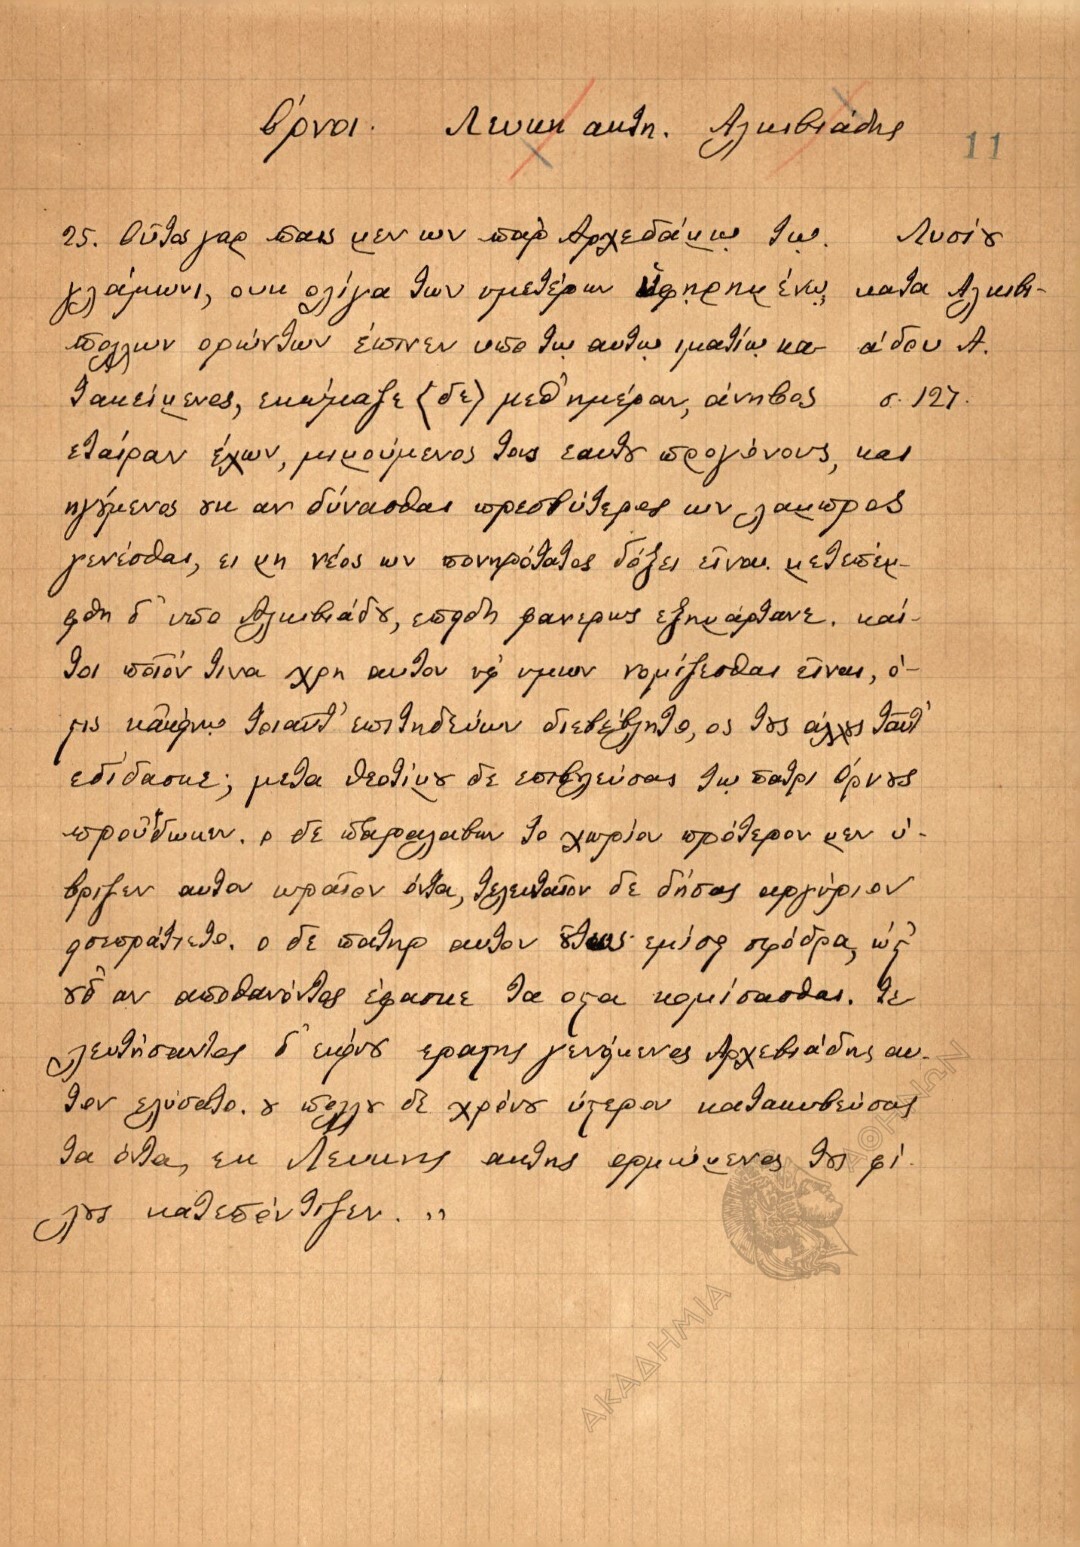 Όρνοι. Λευκη ακτη. Αλκιβιάδης
11
25. Οὗτος γαρ παις μεν ων παρ' Αρχεδάμῳ τῳ. Λυσίου
γλάμωνι, ουκ ολίγα των υμετέρων ὑφῃρημένῳ, κατα Αλκιβι-
πολλων ορώντων έπινεν υπο τῳ αυτῳ ιματίῳ κα- άδου Α.
τακείμενος, εκώμαζε <δε> μεθ' ημέραν, άνηβος σ. 127.
εταίραν έχων, μιμούμενος τους εαυτου προγόνους, και
ηγούμενος ουκ αν δύνασθαι πρεσβύτερος ων λαμπρος
γενέσθαι, ει μη νέος ων πονηρότατος δόξει εῖναι. μετεπέμ-
φθη δ' υπο Αλκιβιάδου, επειδη φανερως εξημάρτανε. καί-
τοι ποῖόν τινα χρη αυτον υφ' υμων νομίζεσθαι εῖναι, ό-
στις κἀκείνῳ τοιαῦτ' επιτηδεύων διεβέβλητο, ος τους άλλους ταῦτ'
εδίδασκε; μετα Θεοτίμου δε επιβουλεύσας τῳ πατρι Όρνους
προὔδωκεν. ο δε παραλαβων το χωρίον πρότερον μεν ύ-
βριζεν αυτον ωραῖον όντα, τελευταῖον δε δήσας αργύριον
εισεπράττετο. ο δε πατηρ αυτον οὕτως εμίσει σφόδρα, ώστ'
ουδ' αν αποθανόντος έφασκε τα οστα κομίσασθαι. τε
λευτήσαντος δ' εκείνου εραστης γενόμενος Αρχεβιάδης αυ-
τον ελύσατο. ου πολλου δε χρόνου ύστερον κατακυβεύσας
τα όντα, εκ Λευκης ακτης ορμώμενος τους φί-
λους κατεπόντιζεν. „
ΑΚΑΔΗΜΙΑ ΑΘΗΝΩΝ